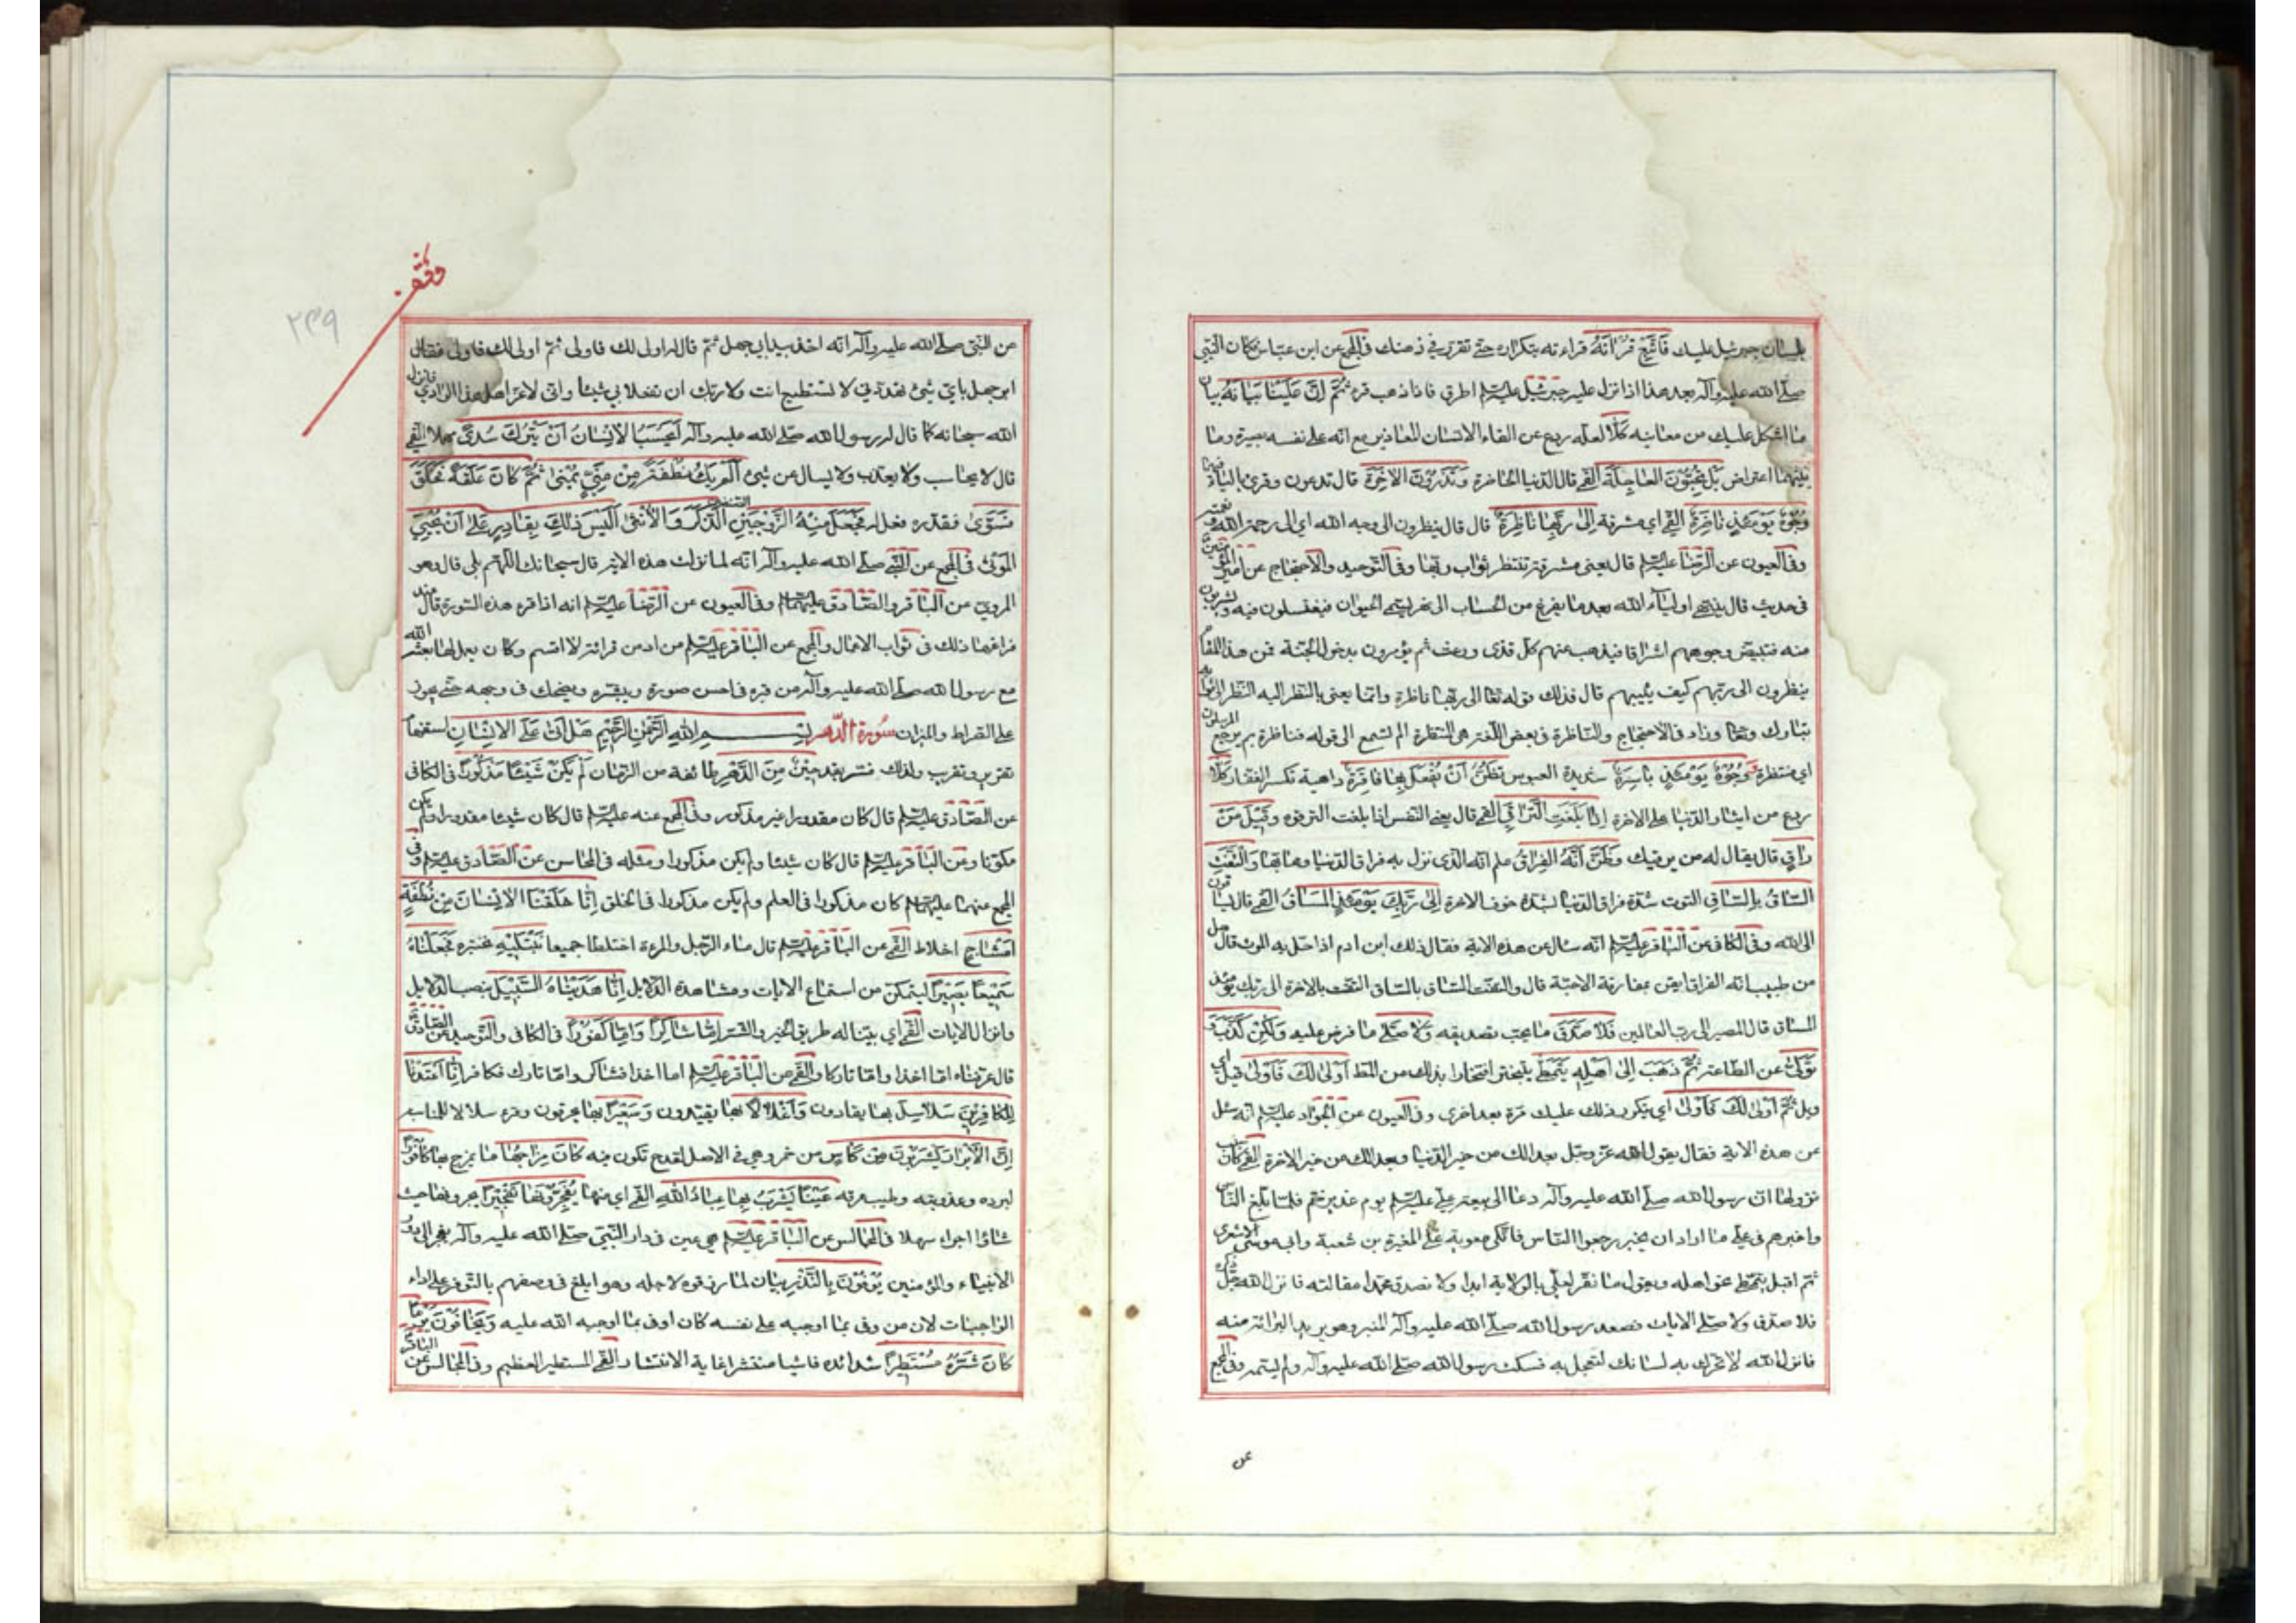 بلسان جبرئيل عليك فَاتَّبِعْ قُرْآنَهُ قراءته بتكراره حتى تقرر في ذهنك في المجمع عن ابن عباس فكان النبي
صلى الله عليه وآله بعد هذا اذا نزل عليه جبرئيل عليه السلم اطرق فاذا ذهب قرء ثُمَّ اِنَّ عَلَيْنَا بَيَانَهُ بيان
ما اشكل عليك من معانيه كَلَّا لعله ردع عن القاء الانسان المعاذير مع انه على نفسه بصيرة وما
بينهما اعتراض بَلْ تُحِبُّونَ العَاجِلَةَ القمي قال الدنيا الحاضرة وَتَذَرُونَ الآخِرَةَ قال تدعون وقرئ بالياء فيهما
وُجُوهٌ يَوْمَئِذٍ نَاضِرَةٌ القمي اي مشرقة اِلَى رَبِّهَا نَاظِرَةٌ قال قال ينظرون الى وجه الله اي الى رحمة الله و
وفي العيون عن الرضا عليه السلم قال يعني مشرقة تنتظر ثواب ربها وفي التوحيد والاحتجاج عن امير
في حديث قال ينتهي اولياء الله بعد ما يفرغ من الحساب الى نهر يسمى الحيوان فيغتسلون فيه ويشربون
منه فتبيض وجوههم اشراقا فيذهب عنهم كل قذى ووعث ثم يؤمرون بدخول الجنة فمن هذا المقام
ينظرون الى ربهم كيف يثيبهم قال فذلك قوله تعا الى ربها ناظرة وانما يعني بالنظر اليه النظر الى ثوابه
تبارك وتعا وزاد في الاحتجاج والناظرة في بعض اللغة هي المنتظرة الم تسمع الى قوله فناظرة بم يرجع المرسلون
اي منتظرة وَوُجُوهٌ يَوْمَئِذٍ بَاسِرَةٌ شديدة العبوس تَظُنُّ اَنْ يُفْعَلَ بِهَا فَاقِرَةٌ داهية تكسر الفقار كَلَّا
ردع من ايثار الدنيا على الاخرة اِذَا بَلَغَتِ التَّرَاقِيَ القمي قال يعني النفس اذا بلغت الترقوه وَقِيلَ مَنْ
رَاقٍ قال يقال له من يرقيك وَظَنَّ اَنَّهُ الفِرَاقُ علم انه الذي نزل به فراق الدنيا ومحابها وَالْتَفَّتِ
السَّاقُ بِالسَّاقِ التوت شدة فراق الدنيا بشدة خوف الاخرة اِلَى رَبِّكَ يَوْمَئِذٍ المَسَاقُ القمي قال يساقون
الى الله وفي الكافي عن الباقر عليه السلم انه سئل عن هذه الاية فقال ذلك ابن ادم اذا حل به الموت قال هل
من طبيب انه الفراق ايقن بمفارقة الاحبة قال والتفت الساق بالساق التفت بالاخرة الى ربك يومئذ
المساق قال المصير الى رب العالمين فَلَا صَدَّقَ ما يجب تصديقه وَلَا صَلَّى ما فرض عليه وَلَكِنْ كَذَّبَ وَ
تَوَلَّى عن الطاعة ثُمَّ ذَهَبَ اِلَى اَهْلِهِ يَتَمَطَّى يتبختر افتخارا بذلك من المط اَوْلَى لَكَ فَاَوْلَى قيل اي
ويل ثُمَّ اَوْلَى لَكَ فَاَوْلَى اي يتكرر ذلك عليك مرة بعد اخرى وفي العيون عن الجواد عليه السلم انه سئل
عن هذه الاية فقال يقول الله عز وجل بعدا لك من خير الدنيا وبعدا لك من خير الاخرة القمي كان
نزولها ان رسول الله صلى الله عليه وآله دعا الى بيعة علي عليه السلم يوم غدير خم فلما بلغ الناس
واخبرهم في علي ما اراد ان يخبر رجعوا الناس فاتكى معوية على المغيرة بن شعبة وابي موسى الاشعري
ثم اقبل يتمطى نحو اهله ويقول ما نقر لعلي بالولاية ابدا ولا نصدق محمدا مقالته فانزل الله جل ذكره
فلا صدق ولا صلى الايات فصعد رسول الله صلى الله عليه وآله المنبر وهو يريد البرائة منه
فانزل الله لا تحرك به لسانك لتعجل به فسكت رسول الله صلى الله عليه وآله ولم يسمه وفي المجمع
عن
وقف
٢٣٩
عن النبي صلى الله عليه وآله انه اخذ بيد ابي جهل ثم قال له اولى لك فاولى ثم اولى لك فاولى فقال
ابو جهل باي شيئ تهددني لا تستطيع انت ولا ربك ان تفعلا بي شيئا واني لاعز اهل هذا الوادي فانزل
الله سبحانه كما قال له رسول الله صلى الله عليه وآله اَيَحْسَبُ الاِنْسَانُ اَنْ يُتْرَكَ سُدًى مهملا القمي
قال لا يحاسب ولا يعذب ولا يسال عن شيئ اَلَمْ يَكُ نُطْفَةً مِنْ مَنِيٍّ يُمْنَى ثُمَّ كَانَ عَلَقَةً فَخَلَقَ
فَسَوَّى فقدره فعدله فَجَعَلَ مِنْهُ الزَّوْجَيْنِ الصنفين الذَّكَرَ وَالاُنْثَى اَلَيْسَ ذَلِكَ بِقَادِرٍ عَلَى اَنْ يُحْيِيَ
المَوْتَى في المجمع عن النبي صلى الله عليه وآله انه لما نزلت هذه الاية قال سبحانك اللهم بلى قال وهو
المروي عن الباقر والصادق عليهما السلم وفي العيون عن الرضا عليه السلم انه اذا قرء هذه السورة قال عند
فراغها ذلك في ثواب الاعمال والمجمع عن الباقر عليه السلم من ادمن قرائة لا اقسم وكان يعمل بها بعثه الله
مع رسول الله صلى الله عليه وآله من قبره في احسن صورة ويبشره ويضحك في وجهه حتى يجوز
على الصراط والميزان سورة الدهر بسم الله الرحمن الرحيم هَلْ اَتَى عَلَى الاِنْسَانِ استفهام
تقرير وتقريب ولذلك فسر بقد حِينٌ مِنَ الدَّهْرِ طائفة من الزمان لَمْ يَكُنْ شَيْئًا مَذْكُورًا في الكافي
عن الصادق عليه السلم قال كان مقدورا غير مذكور وفي المجمع عنه عليه السلم قال كان شيئا مقدورا ولم يكن
مكونا وعن الباقر عليه السلم قال كان شيئا ولم يكن مذكورا ومثله في المحاسن عن الصادق عليه السلم وفي
المجمع عنهما عليهما السلم كان مذكورا في العلم ولم يكن مذكورا في الخلق اِنَّا خَلَقْنَا الاِنْسَانَ مِنْ نُطْفَةٍ
اَمْشَاجٍ اخلاط القمي عن الباقر عليه السلم قال ماء الرجل والمرءة اختلطا جميعا نَبْتَلِيهِ نختبره فَجَعَلْنَاهُ
سَمِيعًا بَصِيرًا ليتمكن من استماع الايات ومشاهدة الدلايل اِنَّا هَدَيْنَاهُ السَّبِيلَ بنصب الدلايل
وانزال الايات القمي اي بينا له طريق الخير والشر اِمَّا شَاكِرًا وَاِمَّا كَفُورًا في الكافي والتوحيد عن الصادق
قال عرفناه اما اخذا واما تاركا والقمي عن الباقر عليه السلم اما اخذ فشاكر واما تارك فكافر اِنَّا اَعْتَدْنَا
لِلْكَافِرِينَ سَلَاسِلَ بها يقادون وَاَغْلَالًا بها يقيدون وَسَعِيرًا بها يحرقون وقرء سلاسلا للمناسبة
اِنَّ الاَبْرَارَ يَشْرَبُونَ مِنْ كَأْسٍ من خمر وهي في الاصل لقدح تكون فيه كَانَ مِزَاجُهَا ما يمزج بها كَافُورًا
لبرده وعذوبته وطيب عرفه عَيْنًا يَشْرَبُ بِهَا عِبَادُ اللهِ القمي اي منها يُفَجِّرُونَهَا تَفْجِيرًا يجرونها حيث
شاؤا اجراء سهلا في المجالس عن الباقر عليه السلم هي عين في دار النبي صلى الله عليه وآله يفجر الى دور
الانبياء والمؤمنين يُوفُونَ بِالنَّذْرِ بيان لما رزقوه لاجله وهو ابلغ في وصفهم بالتوفر على اداء
الواجبات لان من وفى بما اوجبه على نفسه كان اوفى بما اوجبه الله عليه وَيَخَافُونَ يَوْمًا
كَانَ شَرُّهُ مُسْتَطِيرًا شدائده فاشيا منتشرا غاية الانتشار القمي المستطير العظيم وفي المجالس عن الباقر